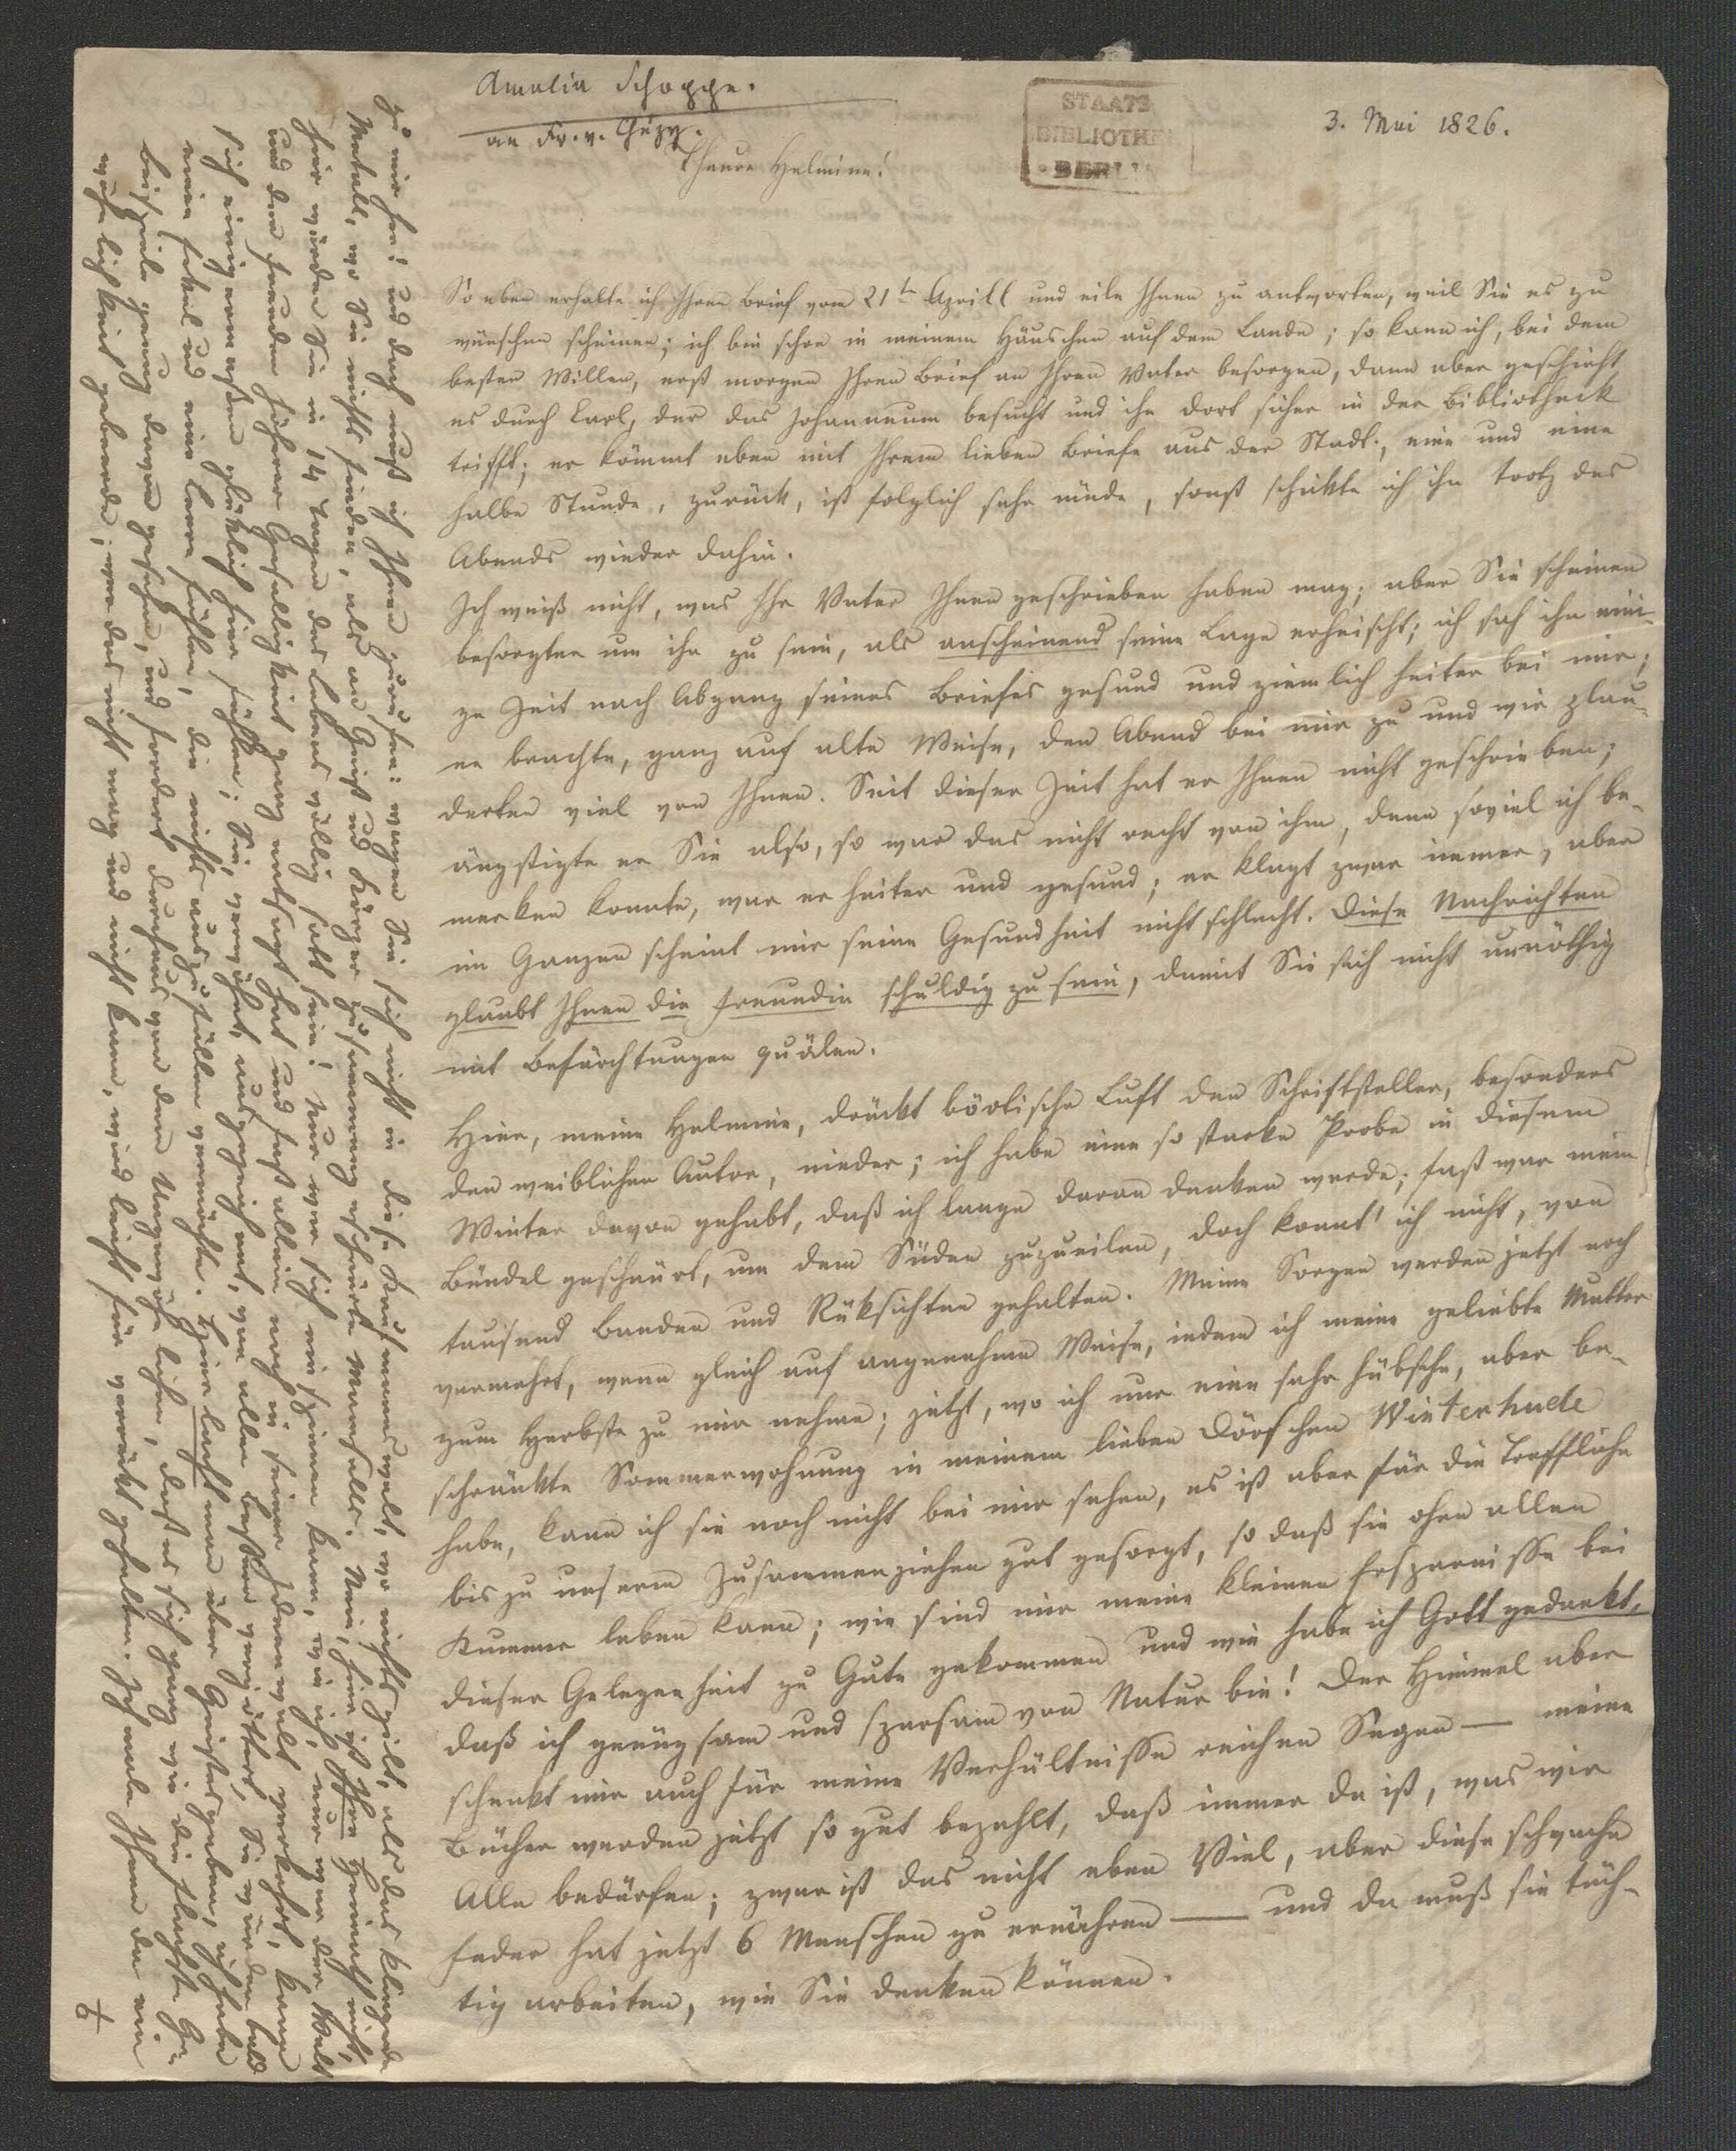 Amalia Schoppe.
an Fr. v. Chézy.
3. Mai 1826.
STAATS
BIBLIOTHEK
BERLIN
Theure Helmine!
So eben erhalte ich Ihren Brief vom 21t Aprill und eile Ihnen zu antworten, weil Sie es zu
wünschen scheinen; ich bin schon in meinem Häuschen auf dem Lande; so kann ich, bei dem
besten Willen, erst morgen Ihren Brief an Ihren Vater besorgen, dann aber geschieht
es durch Carl, der das Johanneum besucht und ihn dort sicher in der Bibliotheck
trifft; er kömmt eben mit Ihrem lieben Briefe aus der Stadt, eine und eine
halbe Stunde, zurück, ist folglich sehr müde, sonst schickte ich ihn trotz des
Abends wieder dahin.
Ich weiß nicht, was Ihr Vater Ihnen geschrieben haben mag; aber Sie scheinen
besorgter um ihn zu sein, als anscheinend seine Lage erheischt; ich sah ihn eini-
ge Zeit nach Abgang seines Briefes gesund und ziemlich heiter bei mir;
er brachte, ganz auf alte Weise, den Abend bei mir zu und wir plau-
derten viel von Ihnen. Seit dieser Zeit hat er Ihnen nicht geschrieben;
ängstigte er Sie also, so war das nicht recht von ihm, denn soviel ich be-
merken konnte, war er heiter und gesund; er klagt zwar immer, aber
im Ganzen scheint mir seine Gesundheit nicht schlecht. Diese Nachrichten
glaubt Ihnen die Freundin schuldig zu sein, damit Sie sich nicht unnöthig
mit Befürchtungen quälen.
Hier, meine Helmine, drückt böotische Luft den Schriftsteller, besonders
den weiblichen Autor, nieder; ich habe eine so starke Probe in diesem
Winter davon gehabt, daß ich lange daran denken werde; fast war mein
Bündel geschnürt, um dem Süden zuzueilen, doch konnt' ich nicht, von
tausend Banden und Rüksichten gehalten. Meine Sorgen werden jetzt noch
vermehrt, wenn gleich auf angenehme Weise, indem ich meine geliebte Mutter
zum Herbste zu mir nehme; jetzt, wo ich nur eine sehr hübsche, aber be-
schränkte Sommerwohnung in meinem lieben Dörfchen Winterhude
habe, kann ich sie noch nicht bei mir sehen, es ist aber für die Treffliche
bis zu unserm Zusammenziehen gut gesorgt, so daß sie ohne allen
Kummer leben kann; wie sind mir meine kleinen Ersparnisse bei
dieser Gelegenheit zu Gute gekommen und wie habe ich Gott gedankt,
daß ich genügsam und sparsam von Natur bin! Der Himmel aber
schenkt mir auch für meine Verhältnisse reichen Segen — meine
Bücher werden jetzt so gut bezahlt, daß immer da ist, was wir
Alle bedürfen; zwar ist das nicht eben Viel, aber diese schwache
Feder hat jetzt 6 Menschen zu ernähren — und da muß sie tüch-
tig arbeiten, wie Sie denken können.
zu mir hin! und doch muß ich Ihnen zurufen: wagen Sie sich nicht in diese Kaufmannswelt, wo nichts gilt, als das klingende
Metall, wo Sie nichts finden, als an Geist und Körper zusammengeschnürte Mamsells. Nein, hier ist Ihre Heimath nicht,
hier würden Sie in 14 Tagen des Lebens völlig satt sein! Nur wer sich einspinnen kann, wie ich, nur wer der Welt
und den Freuden höherer Geselligkeit ganz entsagt hat und fast allein noch in seiner Ideenwelt verkehrt, kann
sich einigermaßen glüklich hier fühlen; Sie, verwöhnt, ausgezeichnet, von allen Besten vergöttert, Sie würden bald
einen Ekel und eine Leere fühlen, die nichts auszufüllen vermöchte. Hier lacht man über Geistesgaben, ich habe
Beispiele genug davon gesehen, und fordert durchaus von dem Ungewöhnlichen, daß es sich ganz wie die flachste Ge-
wöhnlichkeit geberde; wer das nicht mag und nicht kann, wird leicht für verrükt gehalten. Ich male Ihnen da ein